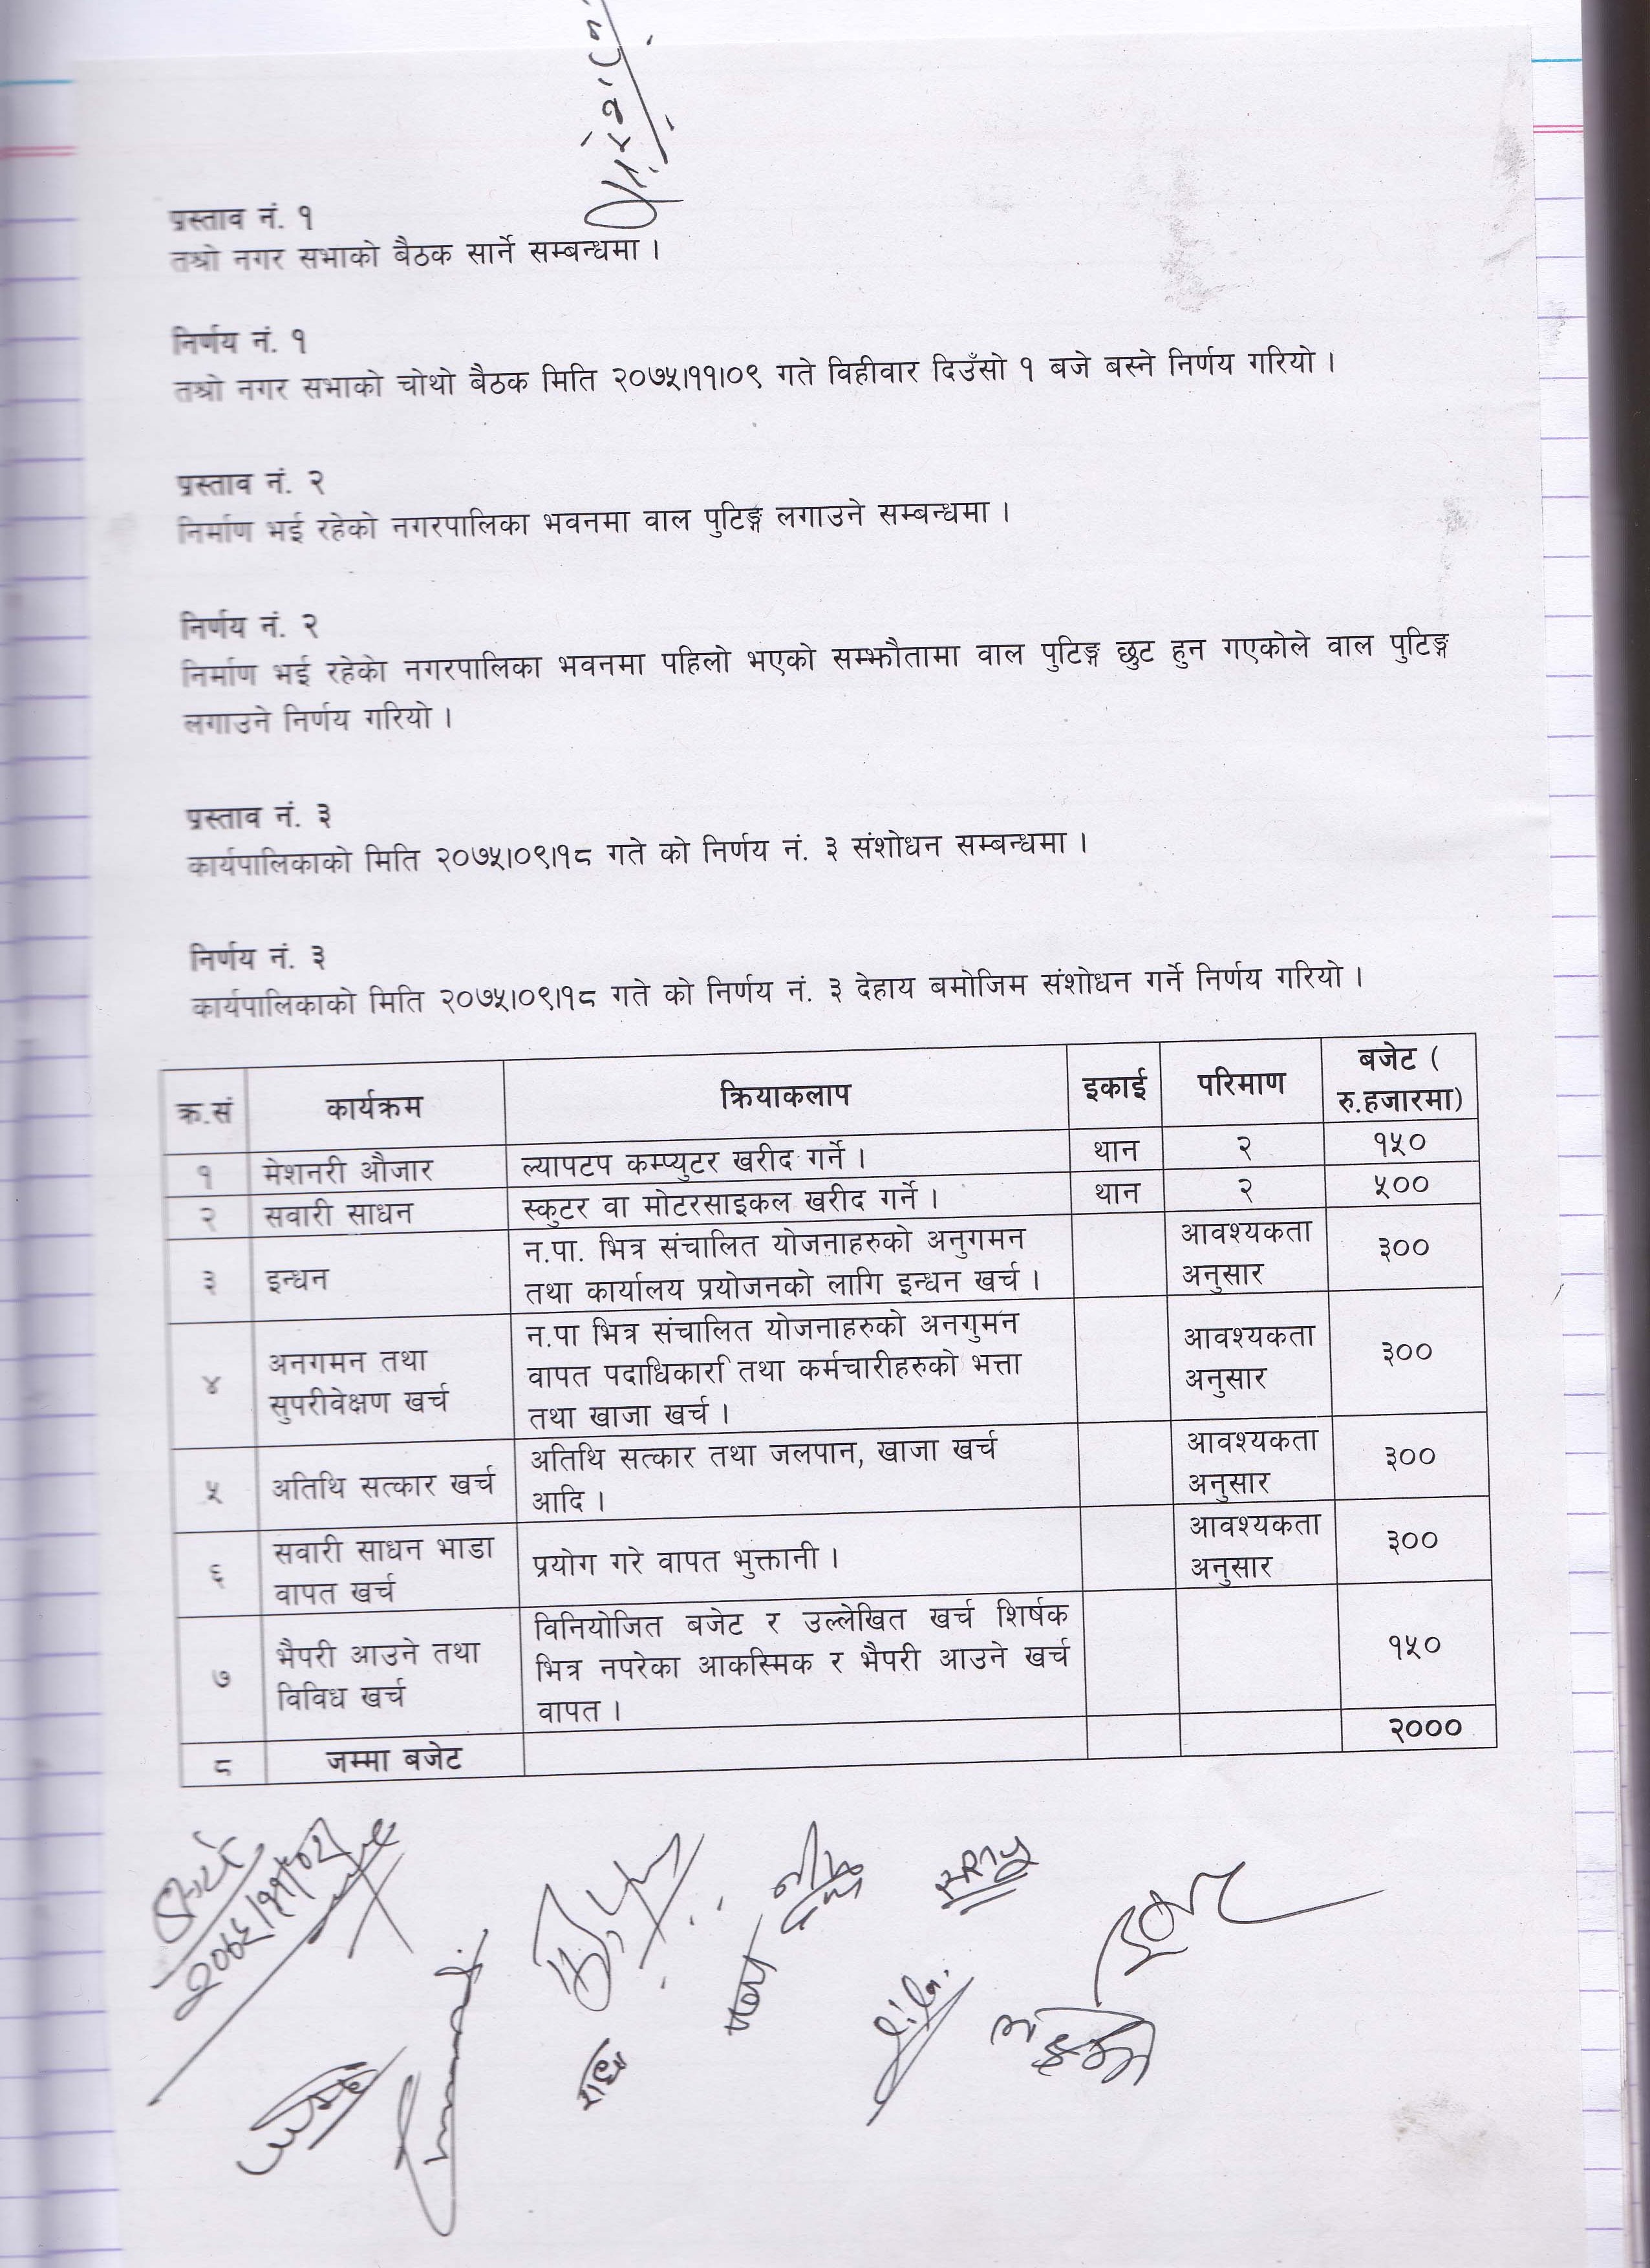 प्रस्ताव नं. १
तश्रो नगर सभाको बैठक सार्ने सम्बन्धमा ।
निर्णय नं. १
तश्रो नगर सभाको चोथो बैठक मिति २०७५।११।०९ गते विहीवार दिउँसो १ बजे बस्ने निर्णय गरियो ।
प्रस्ताव नं. २
निर्माण भई रहेको नगरपालिका भवनमा वाल पुटिङ्ग लगाउने सम्बन्धमा ।
निर्णय नं. २
निर्माण भई रहेकेा नगरपालिका भवनमा पहिलो भएको सम्झौतामा वाल पुटिङ्ग छुट हुन गएकोले वाल पुटिङ्ग
लगाउने निर्णय गरियो ।
प्रस्ताव नं. ३
कार्यपालिकाको मिति २०७५।०९।१८ गते को निर्णय नं. ३ संशोधन सम्बन्धमा ।
निर्णय नं. ३
कार्यपालिकाको मिति २०७५।०९।१८ गते को निर्णय नं. ३ देहाय बमोजिम संशोधन गर्ने निर्णय गरियो ।
क्र.सं कार्यक्रम क्रियाकलाप इकाई परिमाण बजेट (
रु.हजारमा)
१ मेशनरी औजार ल्यापटप कम्प्युटर खरीद गर्ने । थान २ १५०
२ सवारी साधन स्कुटर वा मोटरसाइकल खरीद गर्ने । थान २ ५००
३ इन्धन न.पा. भित्र संचालित योजनाहरुको अनुगमन आवश्यकता ३००
तथा कार्यालय प्रयोजनको लागि इन्धन खर्च । अनुसार
४ अनगमन तथा न.पा भित्र संचालित योजनाहरुको अनगुमन आवश्यकता ३००
सुपरीवेक्षण खर्च वापत पदाधिकारी तथा कर्मचारीहरुको भत्ता अनुसार
तथा खाजा खर्च ।
५ अतिथि सत्कार खर्च अतिथि सत्कार तथा जलपान, खाजा खर्च आवश्यकता ३००
आदि । अनुसार
६ सवारी साधन भाडा प्रयोग गरे वापत भुक्तानी । आवश्यकता ३००
वापत खर्च अनुसार
७ भैपरी आउने तथा विनियोजित बजेट र उल्लेखित खर्च शिर्षक १५०
विविध खर्च भित्र नपरेका आकस्मिक र भैपरी आउने खर्च
वापत ।
८ जम्मा बजेट २०००